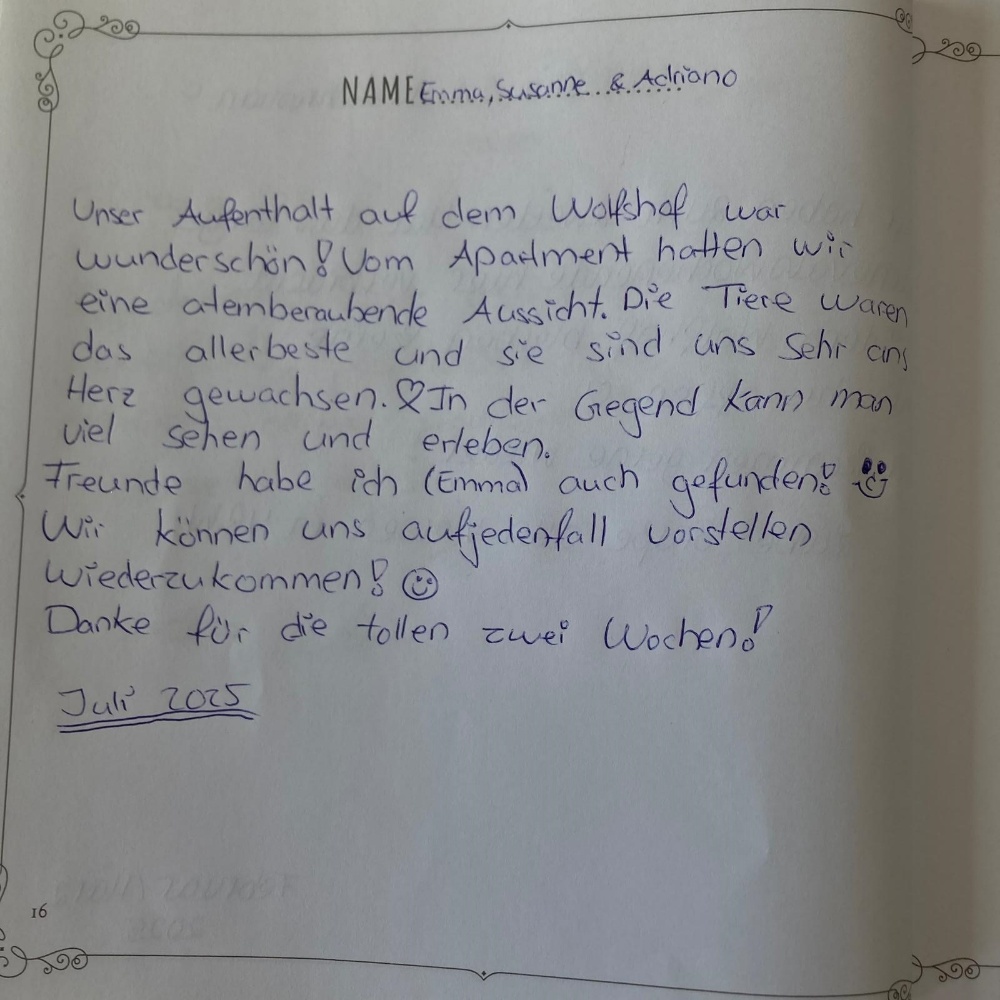 NAME Emma, Susanne & Adriano
Unser Aufenthalt auf dem Wolfshof war
wunderschön! Vom Apartment hatten wir
eine atemberaubende Aussicht. Die Tiere waren
das allerbeste und sie sind uns sehr ans
Herz gewachsen. ♡ In der Gegend kann man
viel sehen und erleben.
Freunde habe ich (Emma) auch gefunden!
Wir können uns aufjedenfall vorstellen
wiederzukommen! ☺
Danke für die tollen zwei Wochen!
Juli 2025
16